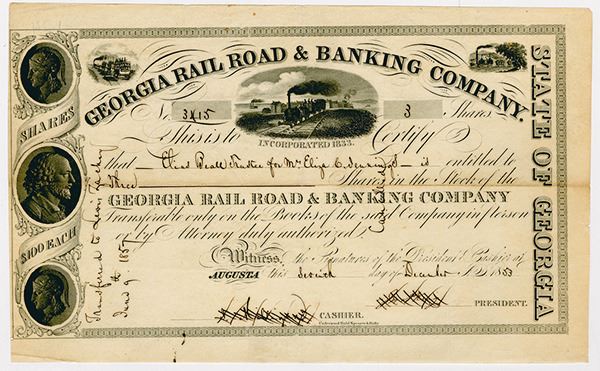 GEORGIA RAIL ROAD & BANKING COMPANY.
No. 3415 3 Shares
INCORPORATED 1833.
This is to Certify
that Trustee for Mrs Eliza C. is entitled to
Three Shares in the Stock of the
GEORGIA RAIL ROAD & BANKING COMPANY
Transferable only on the Books of the said Company in person
or by Attorney duly authorized
Witness, the Signatures of the President & Cashier at
AUGUSTA this Seventh day of December 1853
PRESIDENT.
CASHIER.
SHARES
$100 EACH
STATE OF GEORGIA
Transferred to